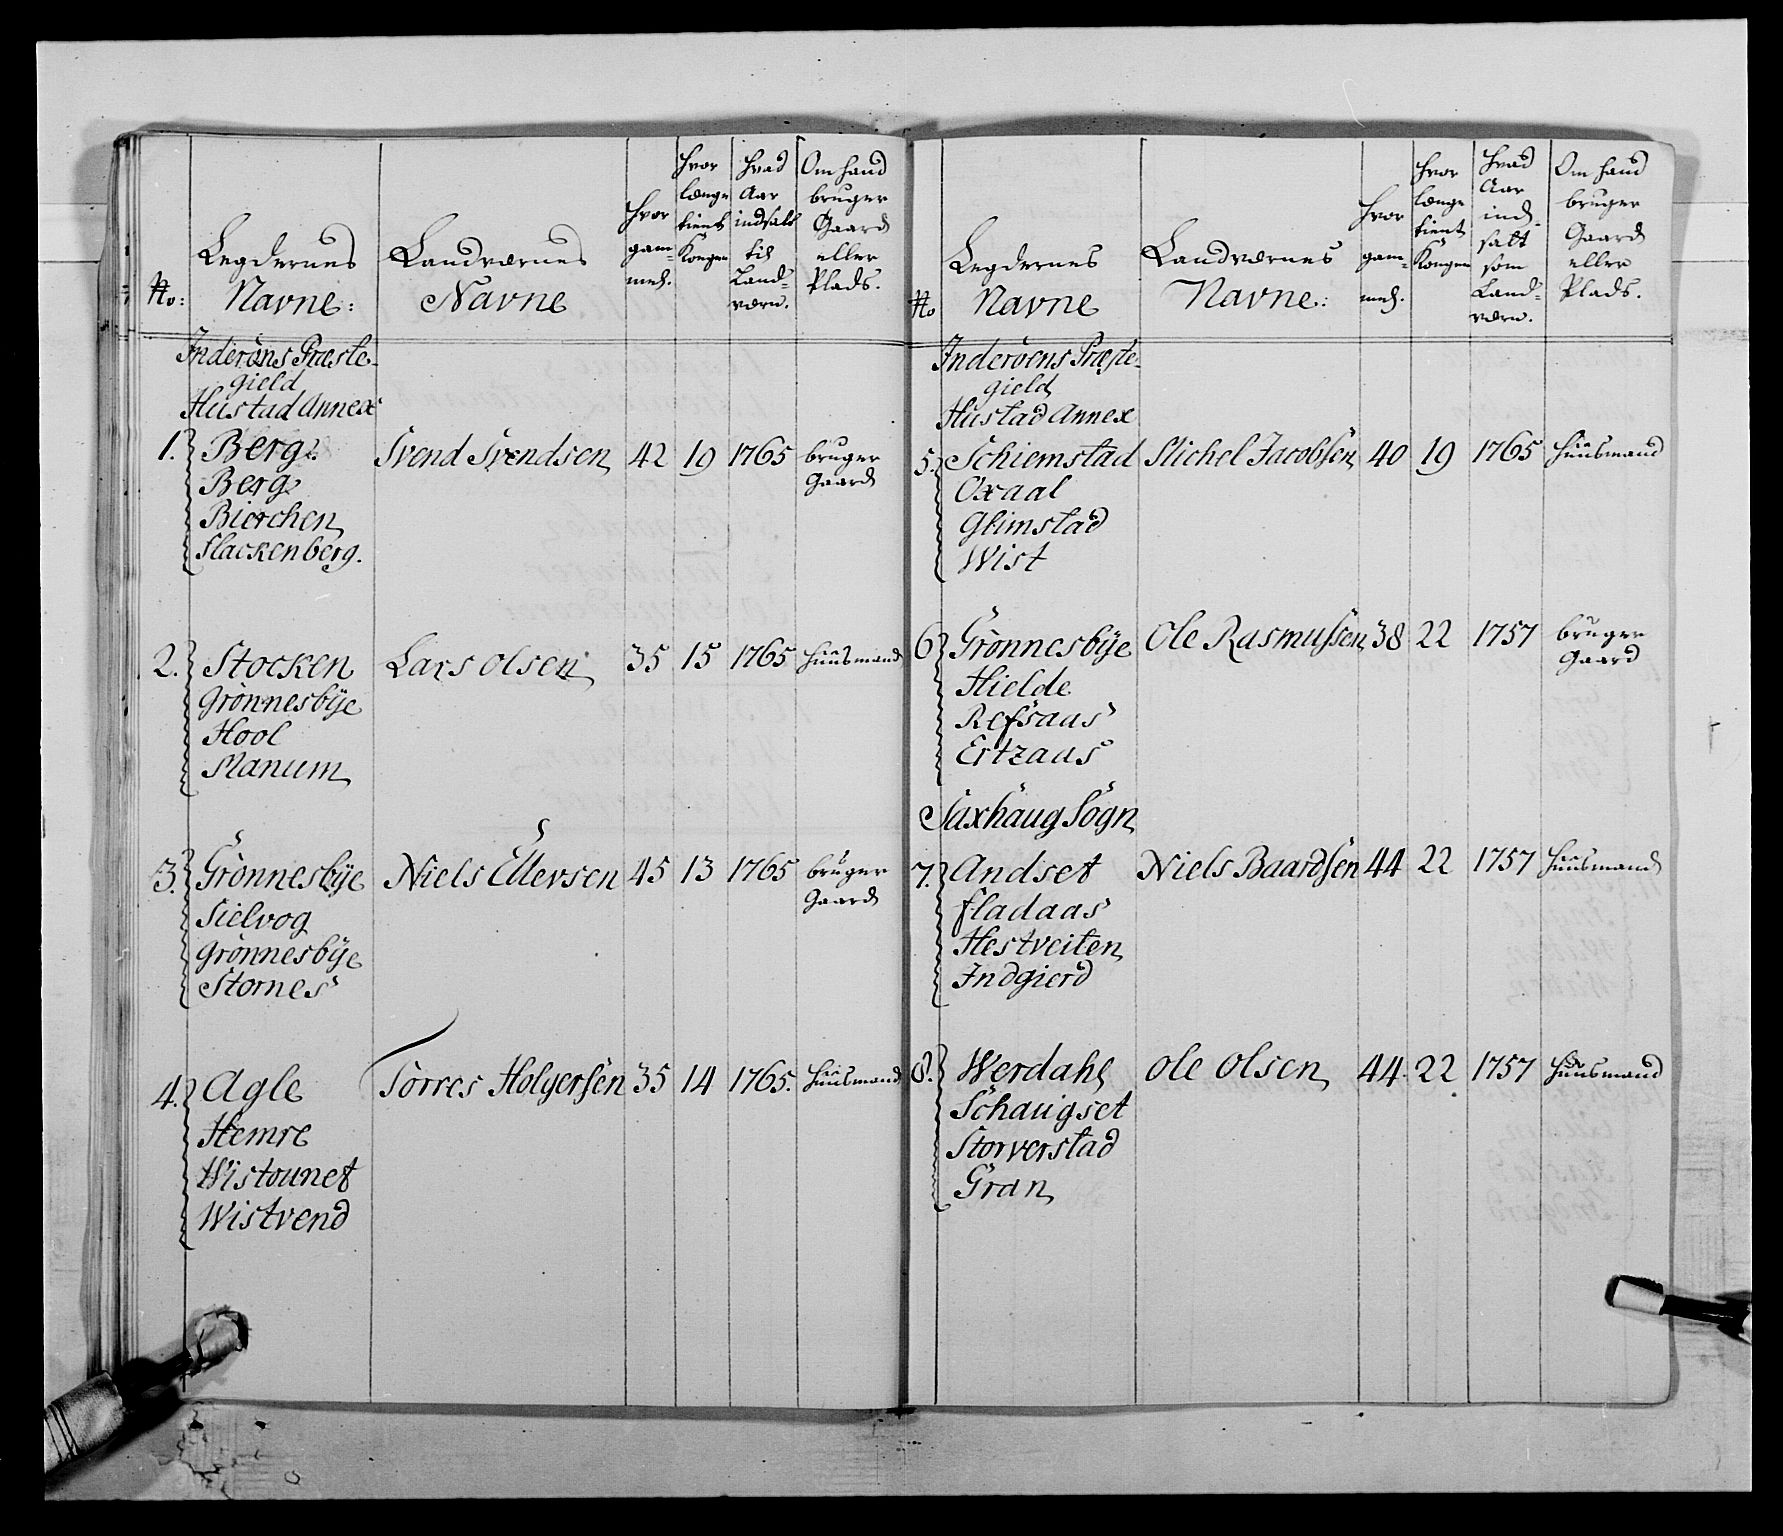 No:
Legdernes
Navne:
Landværnes
Navne
hvor
gam-
mel.
hvor
længe
tient
Kongen
hvad
Aar
indsatt
til
Land-
værn.
Om hand
bruger
Gaard
eller
Plads.
Inderöns Præste-
gield
Hustad Annex
1. Berg. Svend Svendsen 42 19 1765 bruger
Berg Gaard
Bierchen
Flackenberg.
2. Stocken Lars Olsen 35 15 1765 huusmand
Grönnesbÿe
Hool
Manum
3. Grönnesbÿe Niels Ellevsen 45 13 1765 bruger
Gaard
Sielvog
Grönnesbÿe
Stornes
4. Agle Torres Holgersen 35 14 1765. huusmand
Hemre
Wistounet
Wistvend
No
Legdernes
Navne
Landværnes
Navne:
hvor
gam-
mel.
hvor
længe
tient
Kongen
hvad
Aar
ind-
satt
som
Land-
værn.
Om hand
bruger
Gaard
eller
Plads.
Inderöens Præste-
gield
Hustad Annex
5. Schiemstad Michel Jacobsen 40 19 1765 huusmand
Oxaal
Glimstad
Wist
6 Grönnesbÿe Ole Rasmussen 38 22 1757 bruger
Gaard
Hielde
Refsaas
Ertzaas
Saxhaug Sogn
7. Andset Niels Baardsen 44 22 1757 huusmand
Fladaas
Hestveiten
Indgierd
8. Werdahl Ole Olsen 44. 22 1757 huusmand
Schaugset
Storverstad
Gran